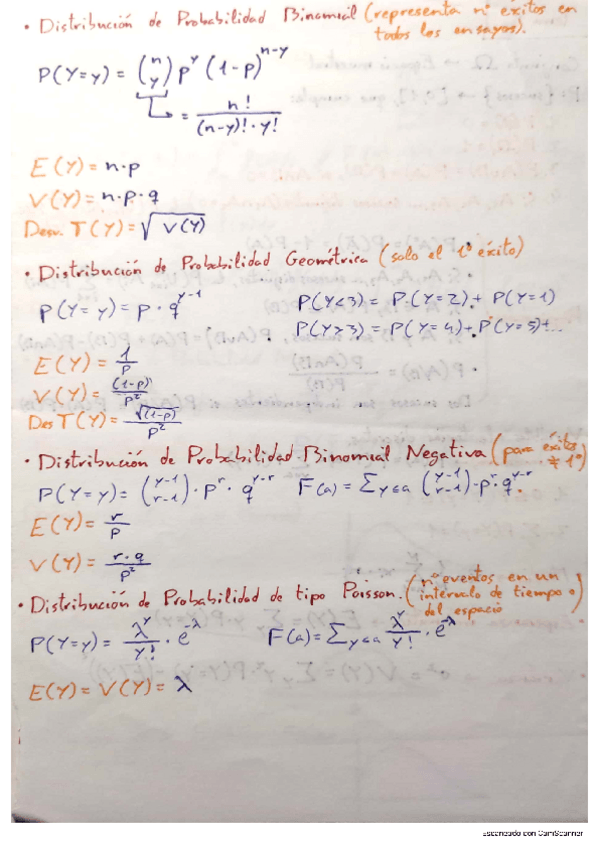 • Distribución de Probabilidad Binomial (representa nº éxitos en
todos los ensayos).
P(Y=y) = (n y) p^y (1-p)^{n-y}
= n! / (n-y)!·y!
E(Y) = n·p
V(Y) = n·p·q
Desv. T(Y) = √V(Y)
• Distribución de Probabilidad Geométrica (solo el 1º éxito)
P(Y=y) = p·q^{y-1} P(Y<3) = P(Y=2) + P(Y=1)
P(Y>3) = P(Y=4) + P(Y=5)+...
E(Y) = 1/p
V(Y) = (1-p)/p²
Des T(Y) = √(1-p)/p²
• Distribución de Probabilidad Binomial Negativa (para éxitos
≠ 1º)
P(Y=y) = (y-1 r-1)·p^r·q^{y-r} F(a) = Σ_{y≤a} (y-1 r-1)·p^r·q^{y-r}
E(Y) = r/p
V(Y) = r·q/p²
• Distribución de Probabilidad de tipo Poisson. (nº eventos en un
intervalo de tiempo o
del espacio)
P(Y=y) = λ^y/y! · e^{-λ} F(a) = Σ_{y≤a} λ^y/y! · e^{-λ}
E(Y) = V(Y) = λ
Escaneado con CamScanner